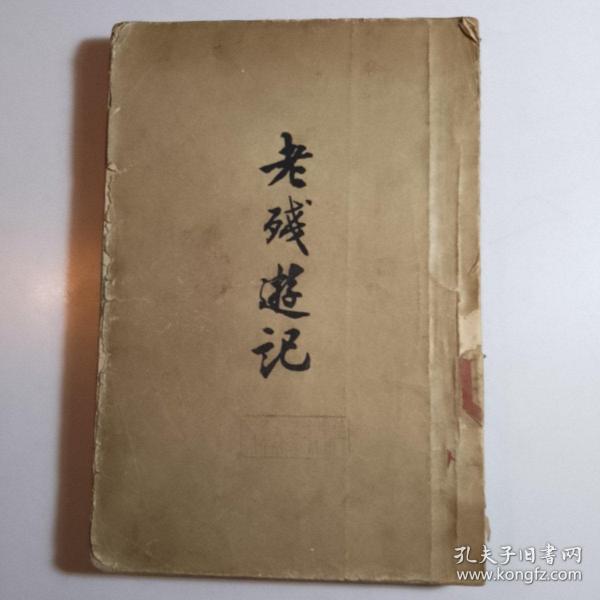 老殘遊记
孔夫子旧書网
www.kongfz.com